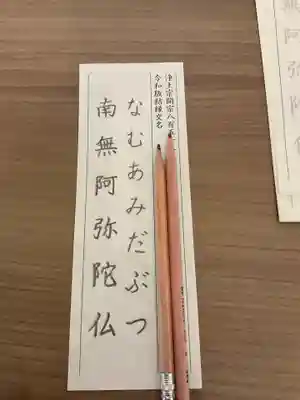 浄土宗開宗八百五十
令和版結縁交名
なむあみだぶつ
南無阿弥陀仏